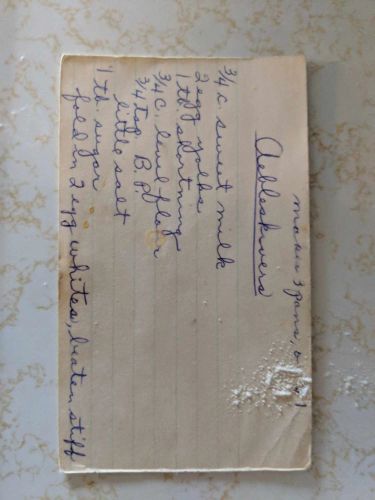 makes 3 pans,
Aebleskivers
3/4 c. sweet milk
2 egg yolks
1 tb. shortning
3/4 c. level flour
3/4 tsp B.P.
little salt
1 tb. sugar
fold in 2 egg whites, beaten stiff